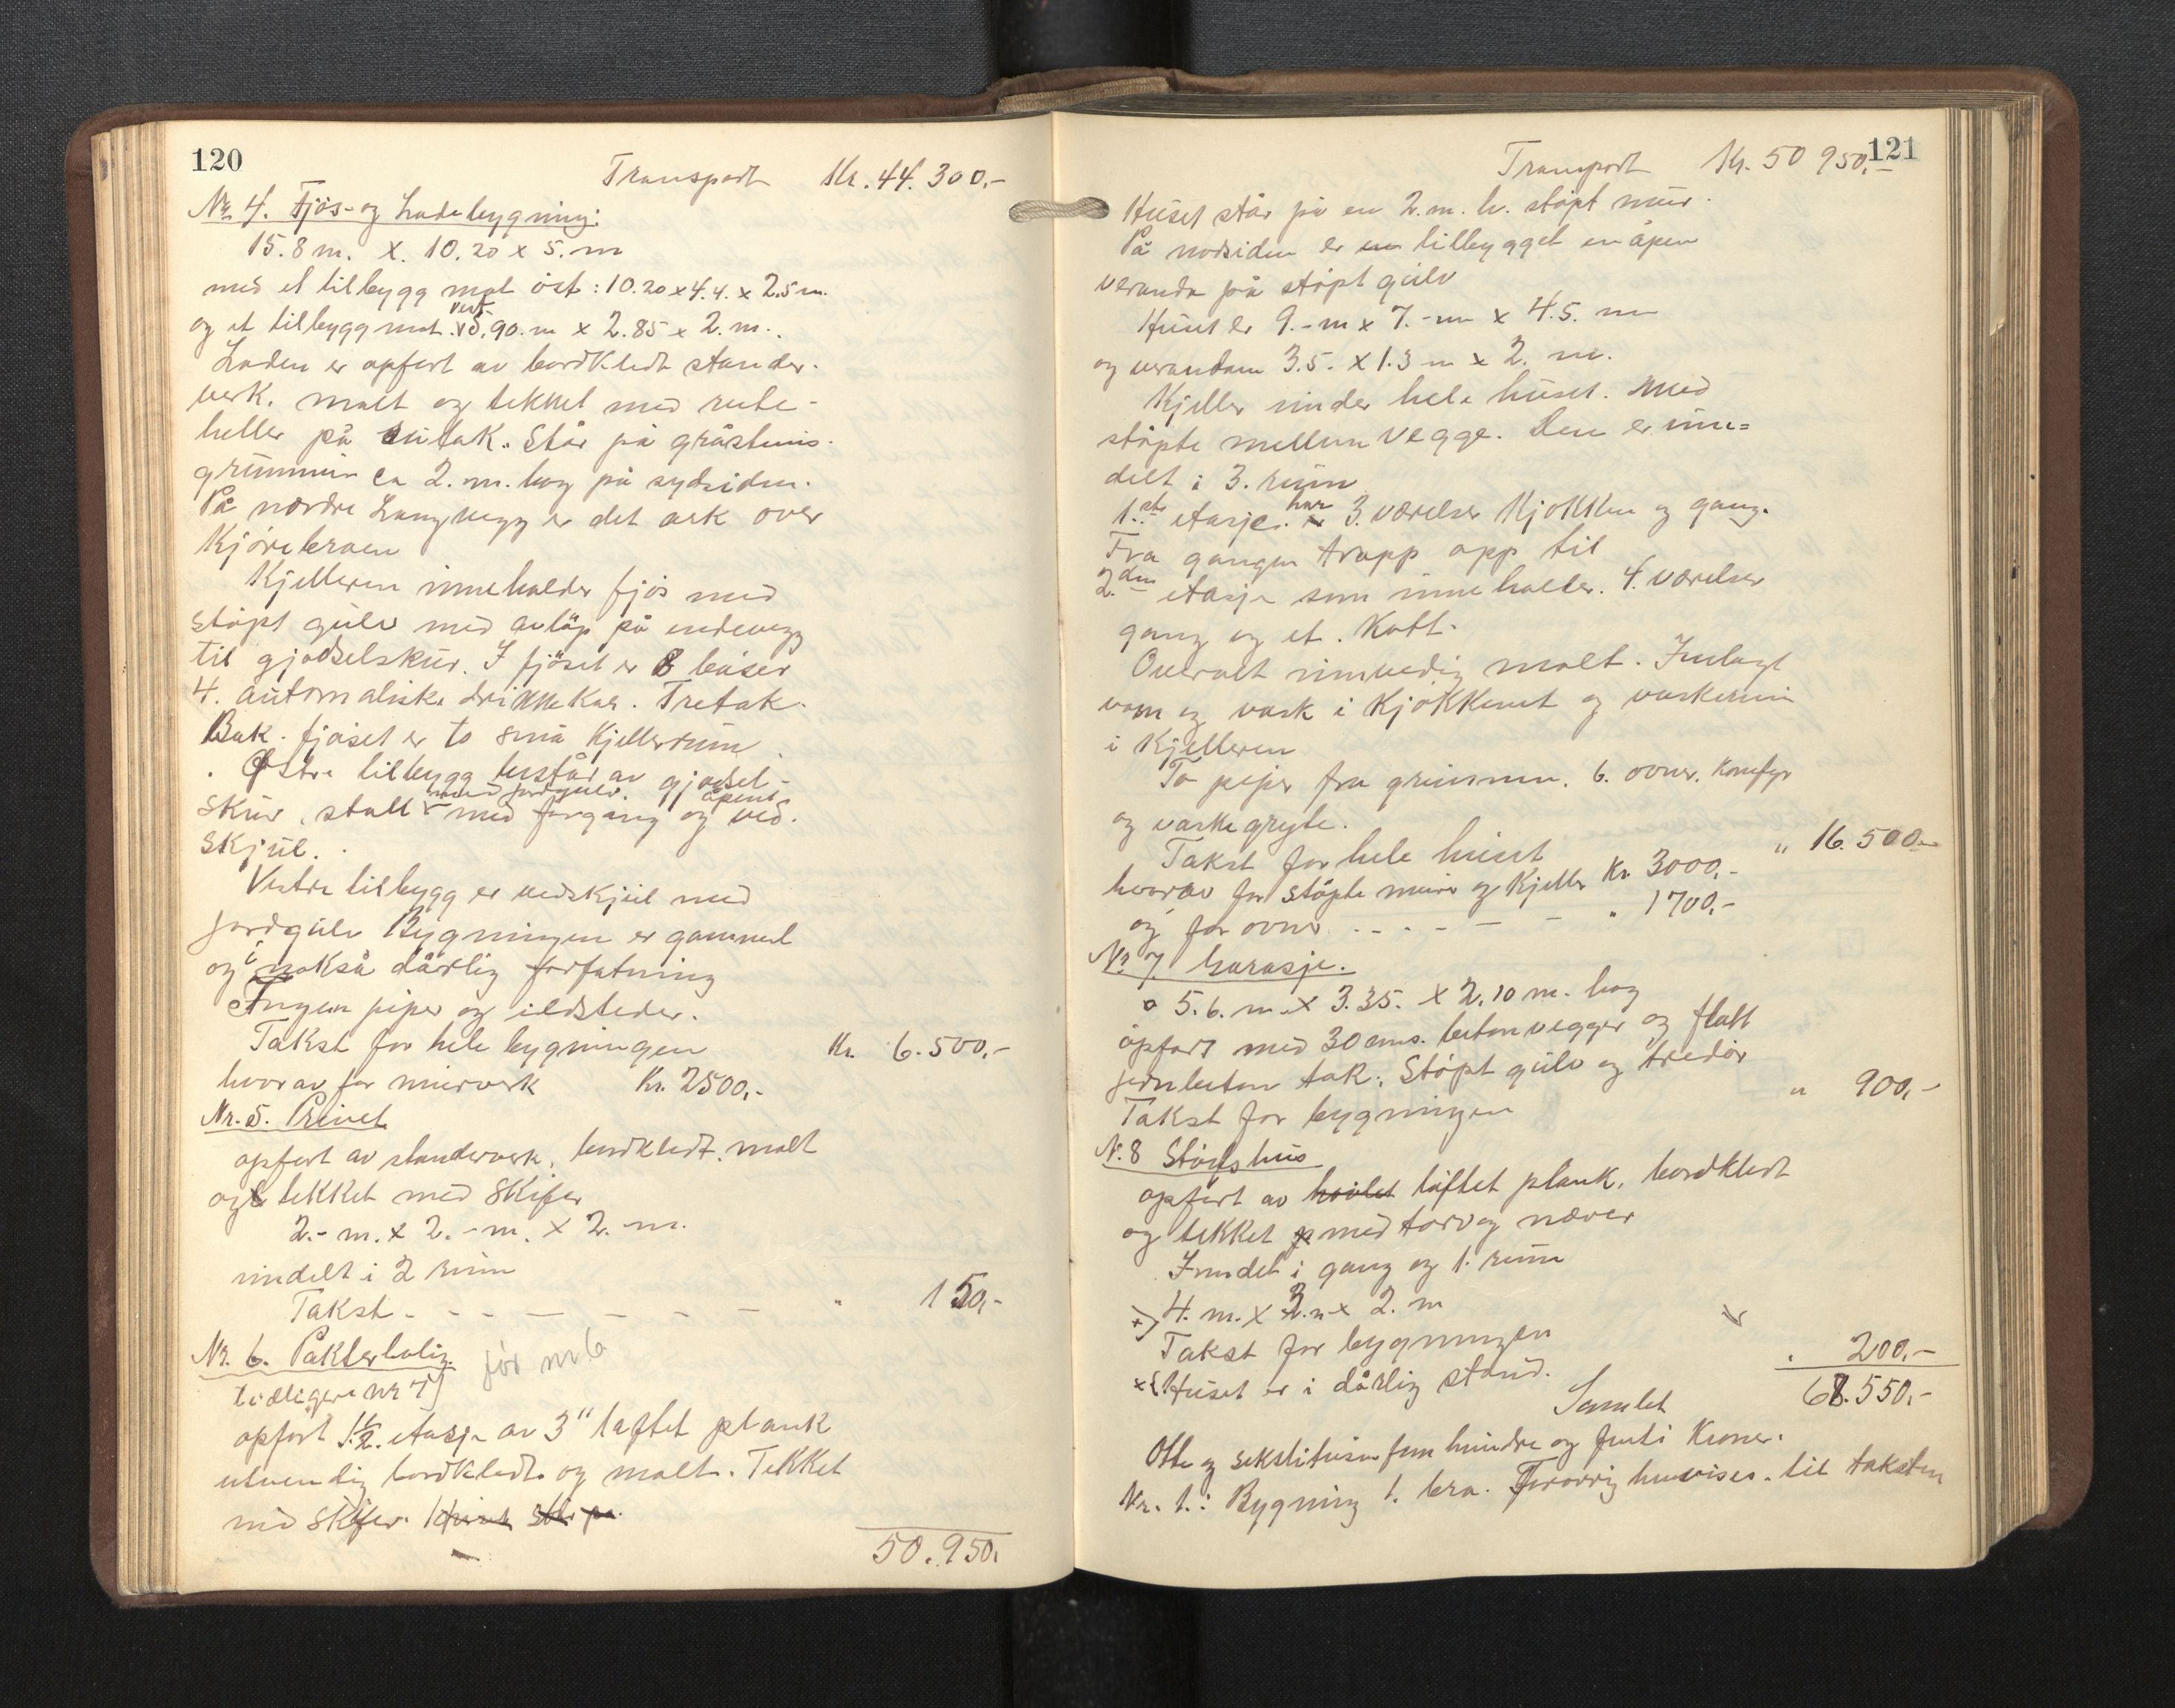 120
Transport Kr. 44.300,-
Nr. 4. Fjös- og Ladebygning:
15.8 m. x. 10.20 x 5. m
med et tilbygg mot öst: 10.20 x 4.4. x 2.5 m.
og et tilbygg mot. vest 5.90. m x 2.85 x 2. m..
Laden er opfört av bordkledt stander-
verk. malt og tekket med rute-
heller på sutak. Står på gråstens-
grunnmur ca 2. m. höy på sydsiden.
På nordre Langvegg er det ark over
Kjörebroen
Kjelleren inneholder fjös med
støpt gulv med avløp på endevegg
til gjødselskur. I fjöset er 8 båser
4. automatiske drikkekar. Tretak.
Bak. fjöset er to små Kjellerrum
Østre tilbygg består av gjødsel-
skur, stall med jordgulv. med forgang og åpent ved-
skjul.
Vestre tilbygg er vedskjul med
jordgulv Bygningen er gammel
og i nokså dårlig forfatning
Ingen piper og ildsteder.
Takst for hele bygningen Kr. 6.500,-
hvorav for murverk Kr. 2500,-
Nr. 5. Privet
opfört av standerverk, bordkledt. malt
og tekket med Skifer
2.- m. x 2.- m. x 2.- m.
inndelt i 2 rum
Takst - - - - - - - " 150,-
Nr. 6. Pakterbolig. för nr 6
tidligere nr 7)
opfört 1 1/2. etasje av 3" laftet plank
utvendig bordkledt. og malt. Tekket
med skifer. Huset står på.
50.950,
121
Transport Kr. 50 950,-
Huset står på en 2. m. h. støpt mur.
På nordsiden er en tilbygget en åpen
veranda på støpt gulv
Huset er 9.- m x 7.- m x 4.5. m
og verandaen 3.5. x 1.3 m x 2. m.
Kjeller under hele huset. Med
støpte mellum vegge. Den er inn=
delt i 3. rum
1.ste etasje. har 3. værelser Kjøkken og gang.
Fra gangen trapp opp til
2.den etasje som inneholder. 4. værelser
gang og et. Kott.
Overalt innvendig malt. Innlagt
vann og vask i Kjøkkenet og vaskerum
i Kjelleren
To piper fra grunnen. 6. ovner. Komfyr
og vaskegryte.
Takst for hele huset " 16.500,-
hvorav for støpte mure og Kjeller Kr. 3000,-
og for ovner - - - - - " 1700,-
Nr 7. Garasje.
5.6. m. x 3.35. x 2.10 m. høy
opført med 30 cms. betonvegger og flatt
jernbeton tak. Støpt gulv og tredør
Takst for bygningen " 900,-
N. 8 Stølshus
opfört av hövlet laftet plank, bordkledt
og tekket med torv og næver
Inndelt i gang og 1. rum
+) 4. m. x 3. m x 2. m
Takst for bygningen . 200,-
x{ Huset er i dårlig stand.
Samlet 68.550,-
Otte og sekstitusen fem hundre og femti Kroner.
Nr. 1.: Bygning 1. bra. Forövrig henvises. til taksten